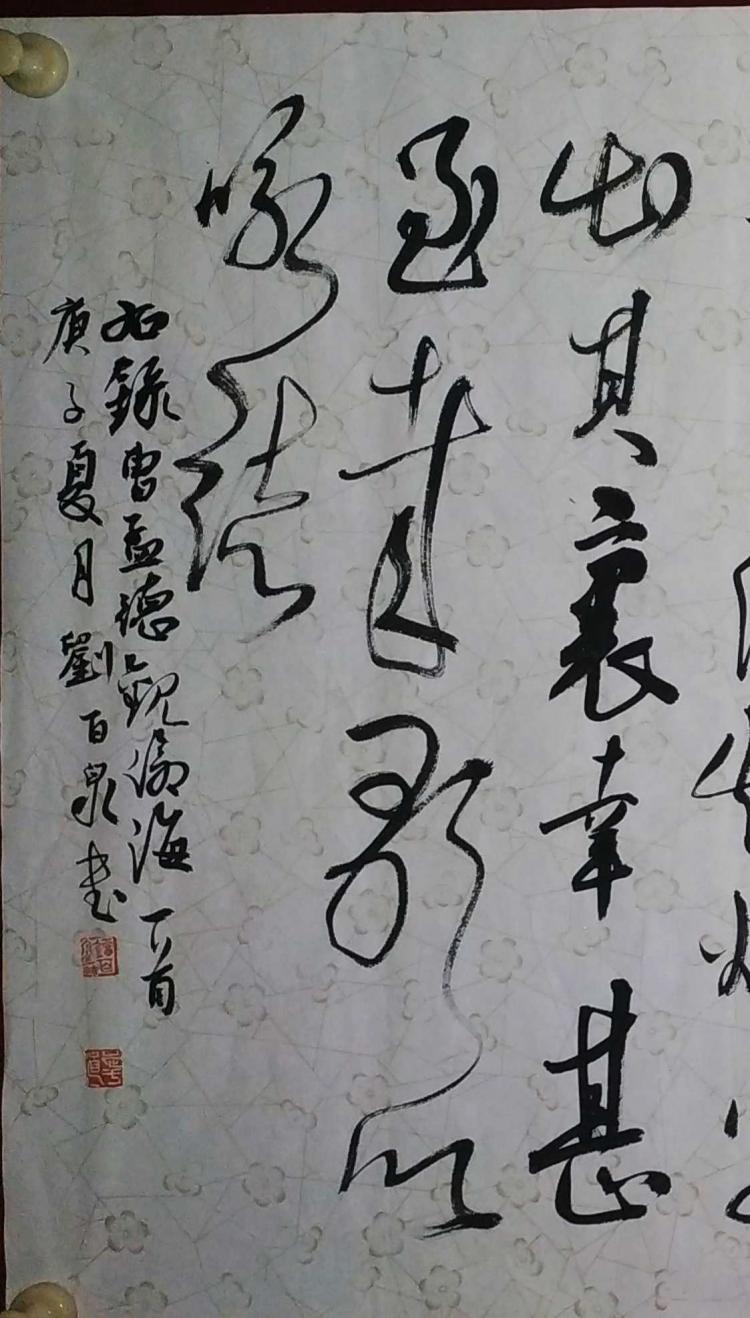 出其裏幸甚
至哉歌以
咏志
右錄曹孟德觀滄海一首
庚子夏月劉百泉书